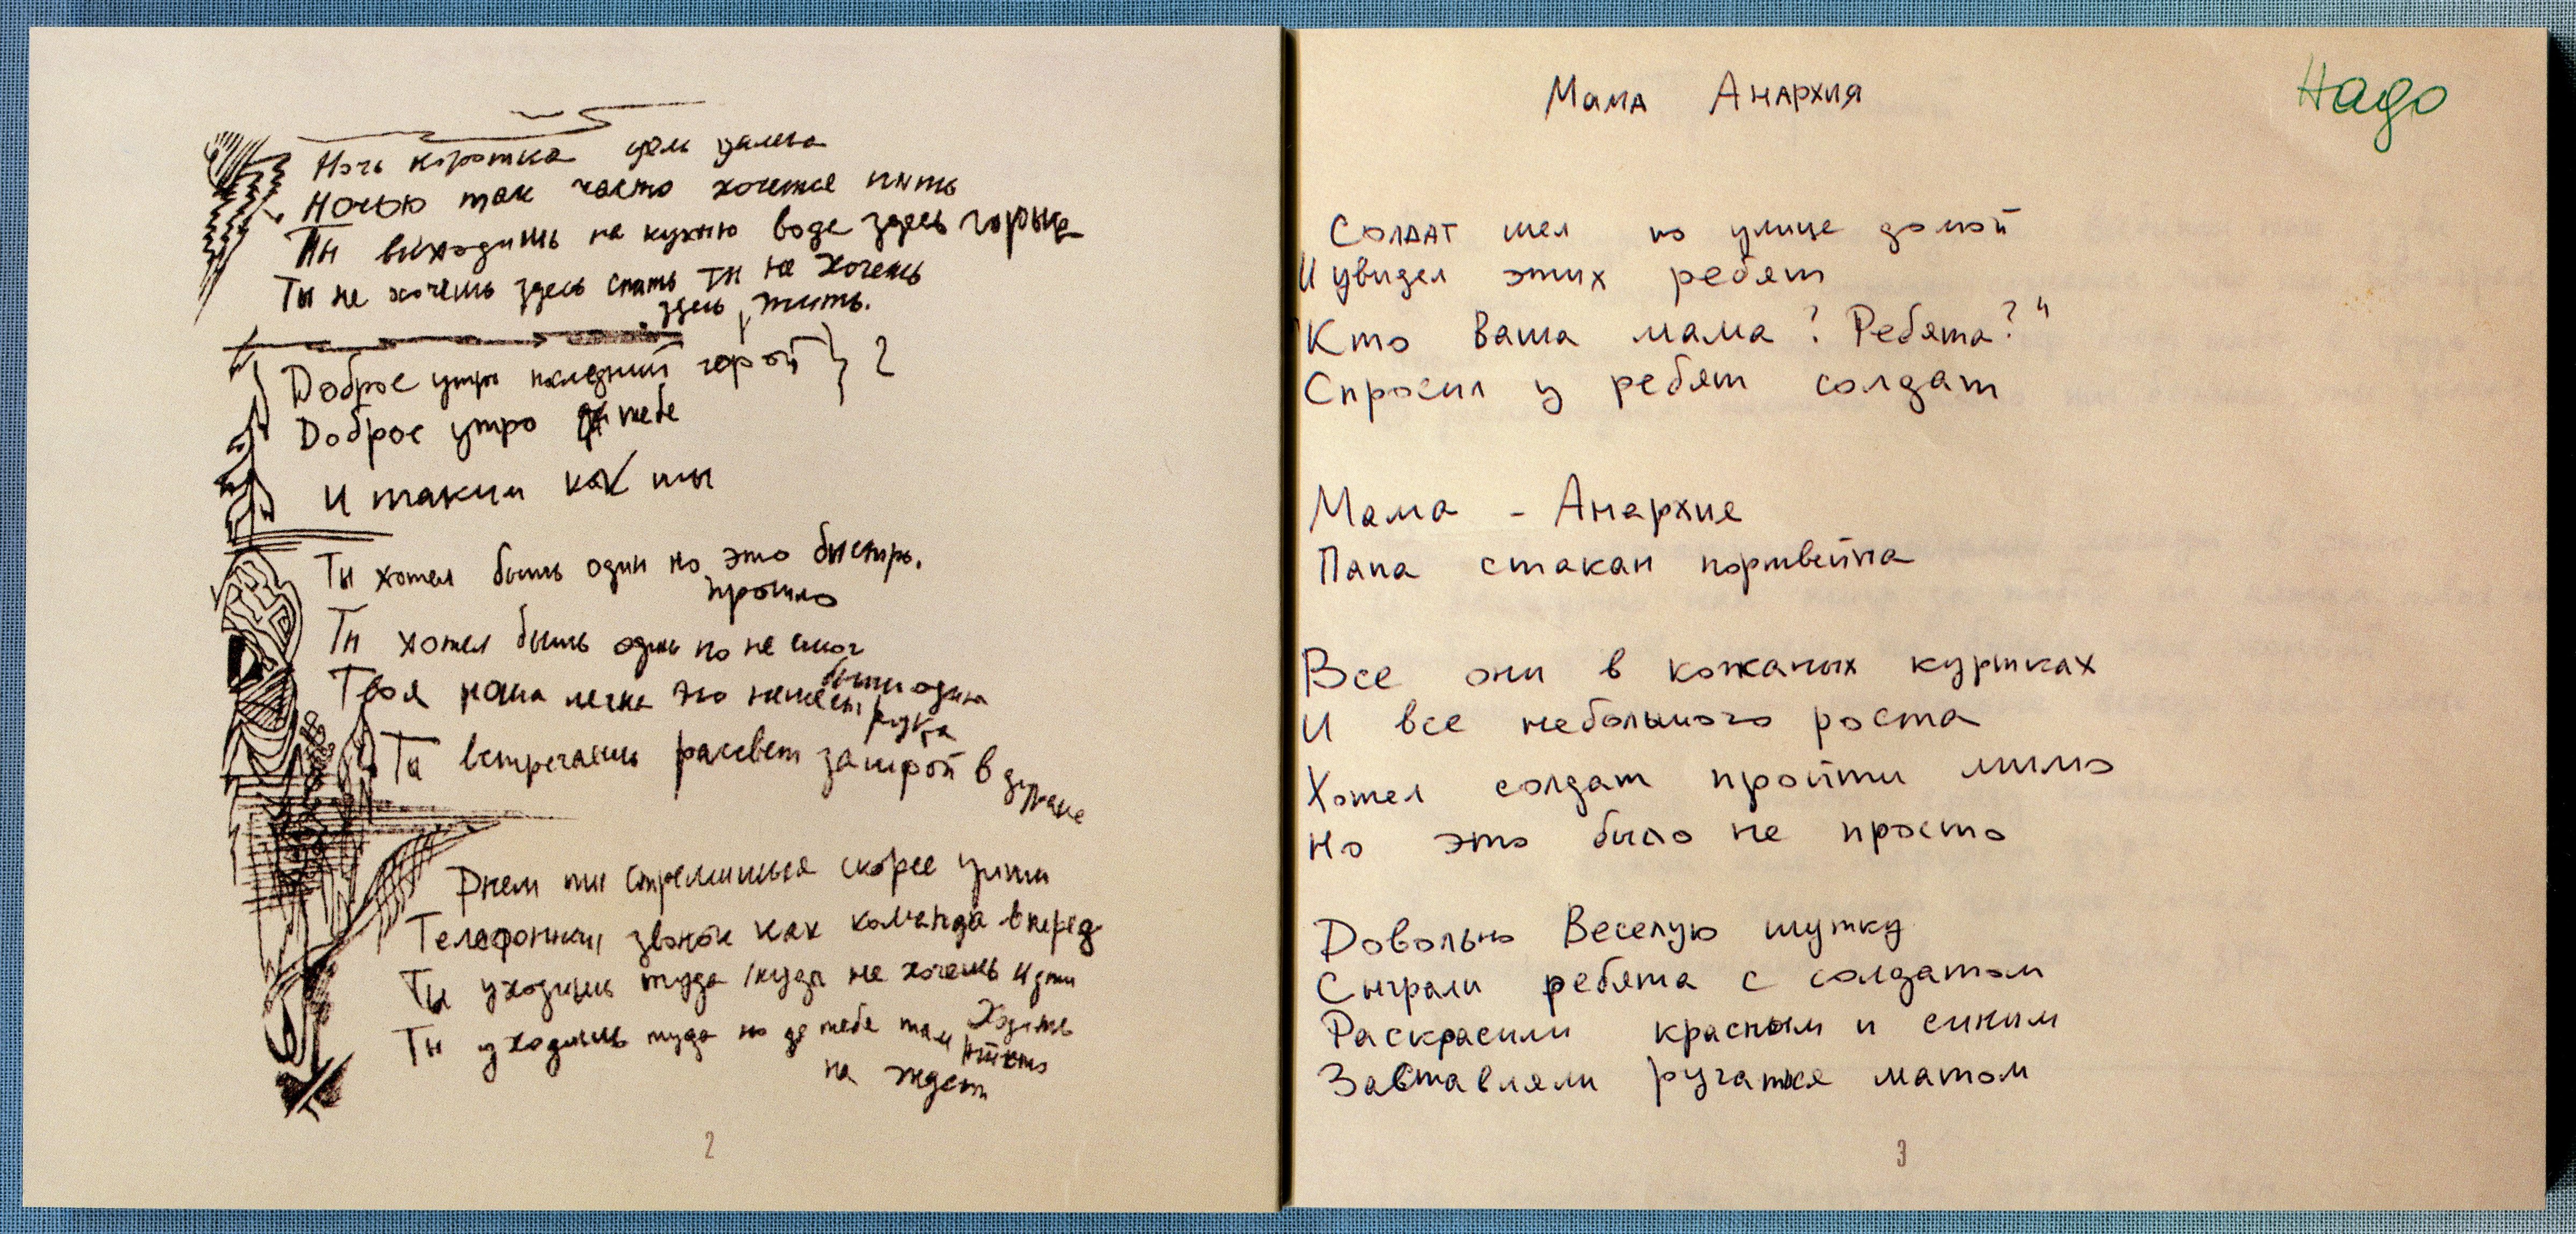 Ночь коротка цель далека
Ночью так часто хочется пить
Ты выходишь на кухню вода здесь горька
Ты не хочешь здесь спать ты не хочешь
здесь жить.
Доброе утро последний герой } 2
Доброе утро тебе
И таким как ты
Ты хотел быть один но это быстро.
прошло
Ты хотел быть один но не смог
быть один
Твоя ноша легка но немеет рука
Ты встречаешь рассвет за игрой в дурака
Днем ты стремишься скорее уйти
Телефонный звонок как команда вперед
Ты уходишь туда куда не хочешь идти
Ходить
Ты уходишь туда но тебе там никто
не ждет
2
Мама Анархия
Надо
Солдат шел по улице домой
И увидел этих ребят
"Кто Ваша мама? Ребята?"
Спросил у ребят солдат
Мама - Анархия
Папа стакан портвейна
Все они в кожаных куртках
И все небольшого роста
Хотел солдат пройти мимо
Но это было не просто
Довольно Веселую шутку
Сыграли ребята с солдатом
Раскрасили красным и синим
Заставляли ругаться матом
3